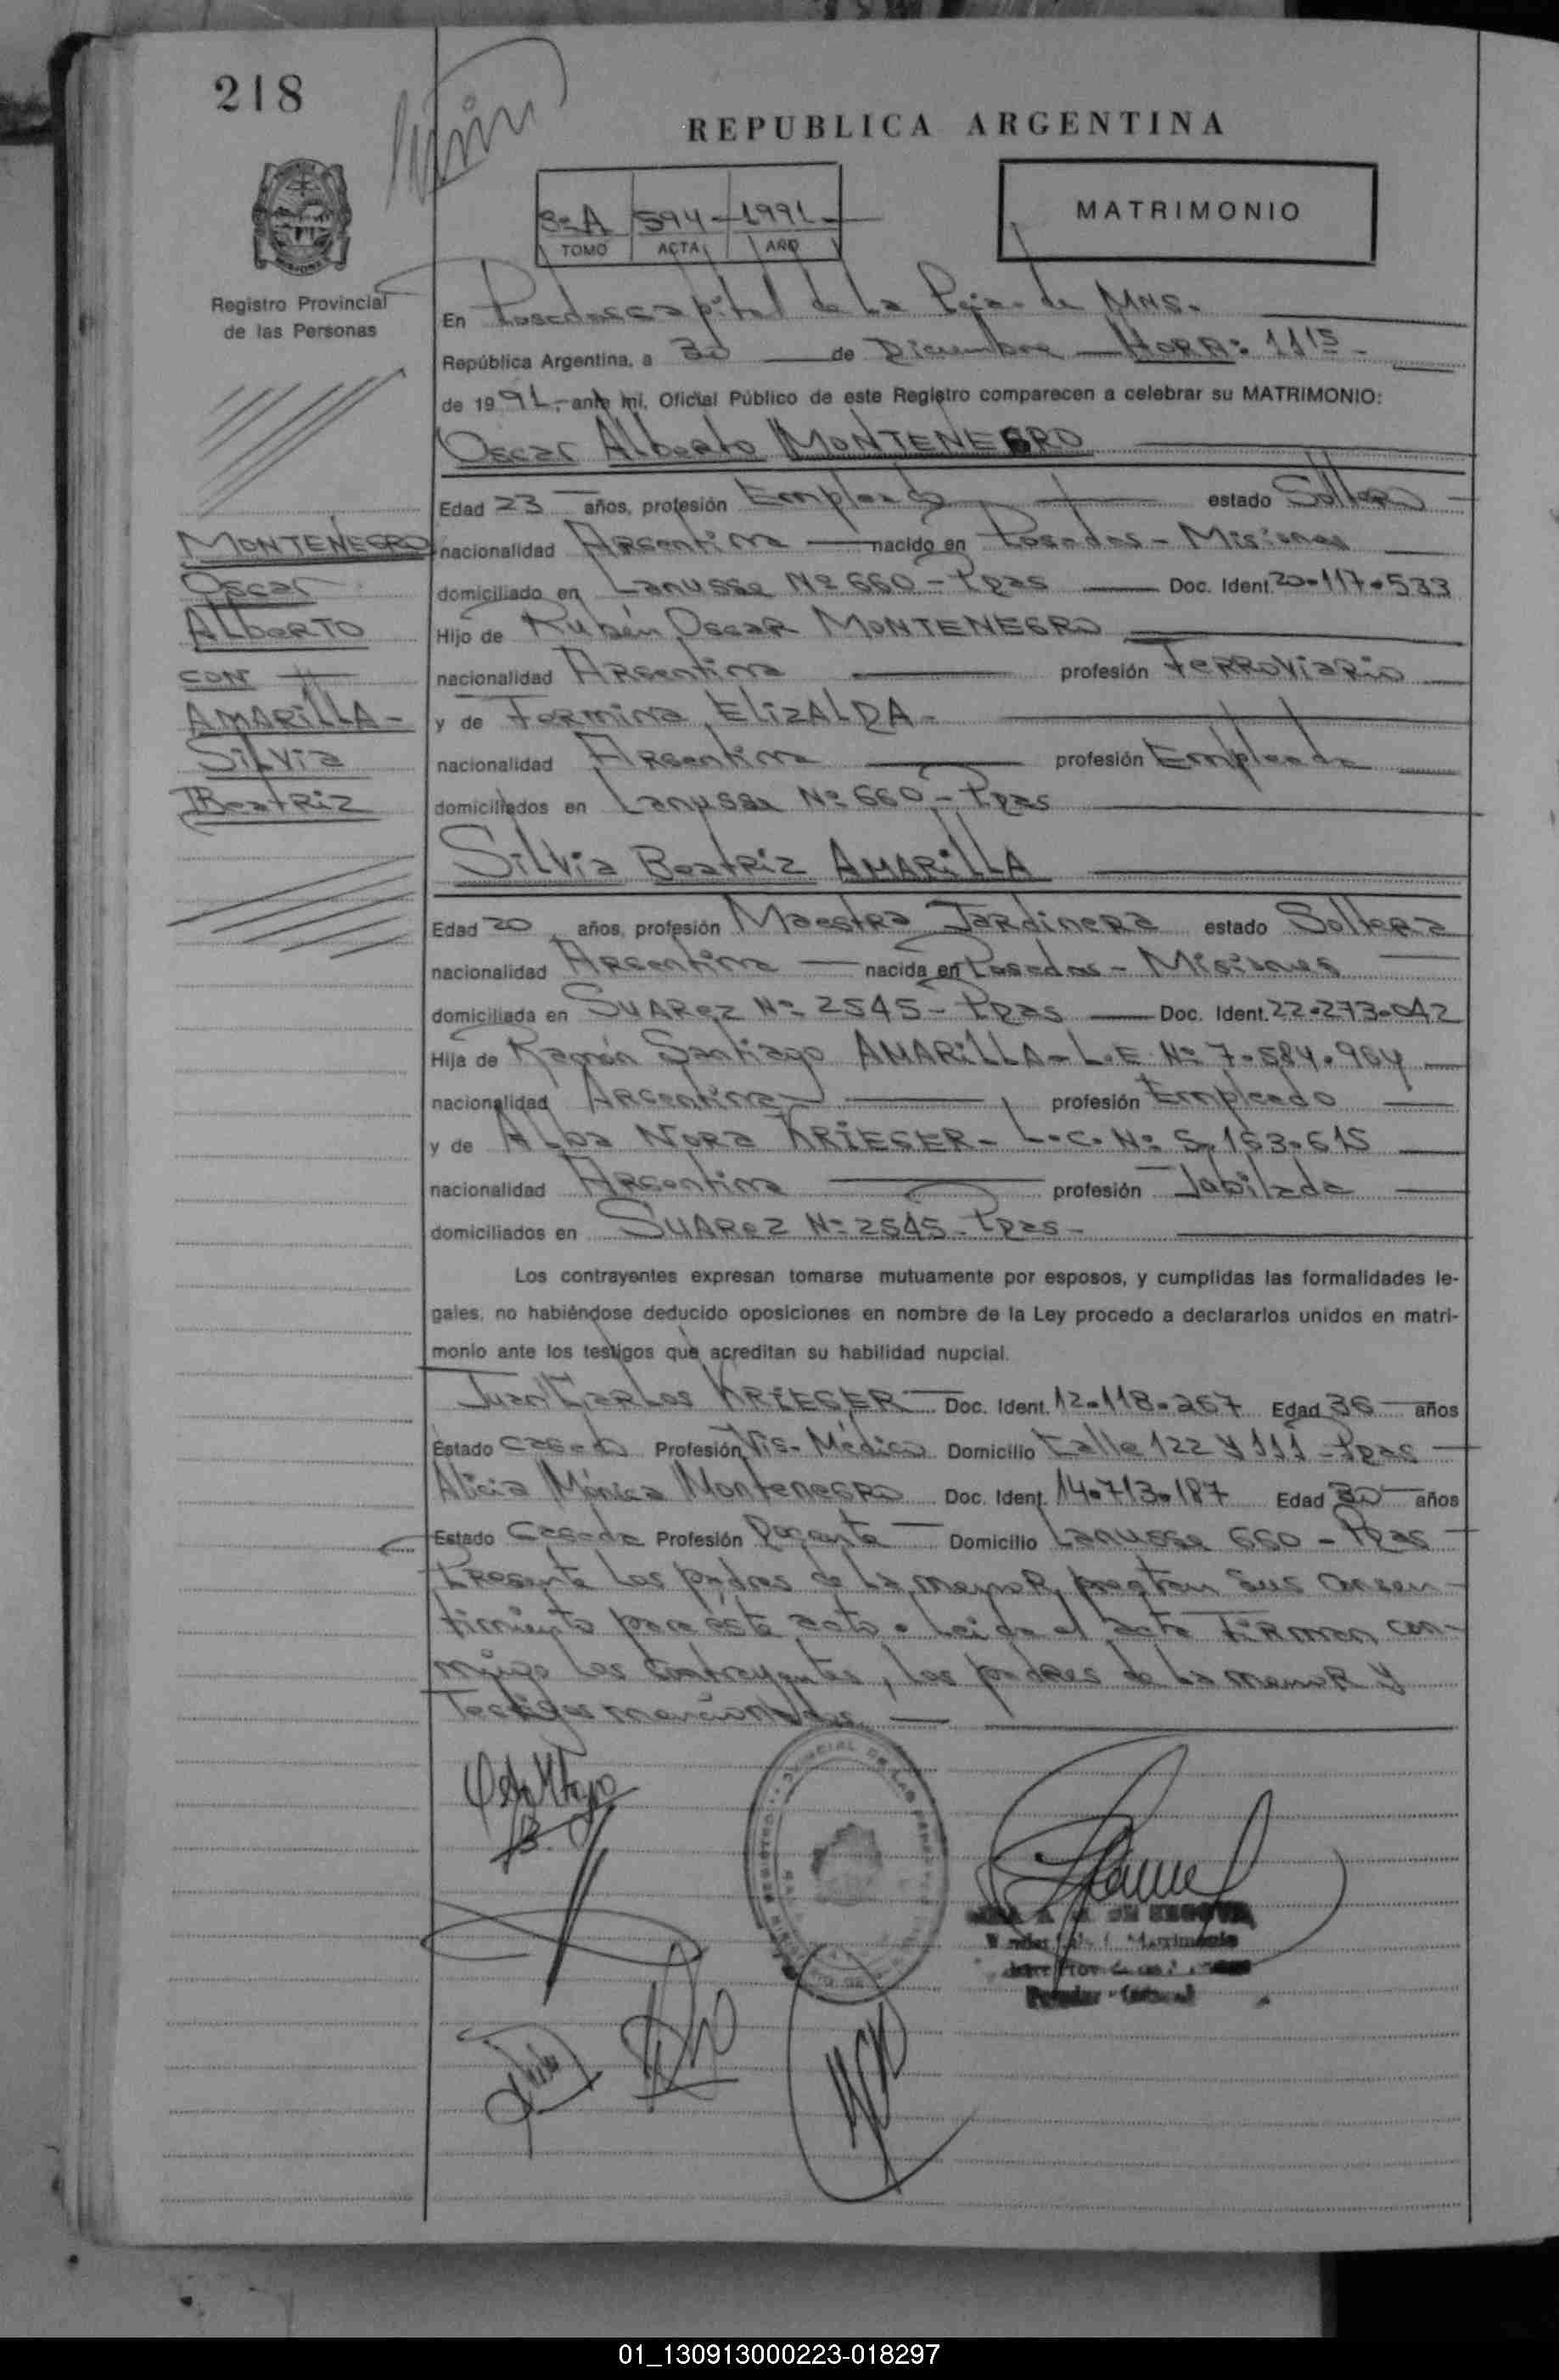 218
REPUBLICA ARGENTINA
3-A 594-1991-
TOMO ACTA AÑO
MATRIMONIO
Registro Provincial
de las Personas
En Posadas capital de La Pcia- de MNS.
República Argentina, a 30 de Diciembre HORA: 11 15-
de 1991.- ante mi, Oficial Público de este Registro comparecen a celebrar su MATRIMONIO:
Oscar Alberto MONTENEGRO
Edad 23 años, profesión Empleado estado Soltero
nacionalidad Argentina nacido en Posadas - Misiones
domiciliado en Lanusse Nº 660 - Pdas Doc. Ident. 20.117.533
Hijo de Rubén Oscar MONTENEGRO
nacionalidad Argentina profesión Ferroviario
y de Fermina ELIZALDA -
nacionalidad Argentina profesión Empleada
domiciliados en Lanusse Nº 660 - Pdas
MONTENEGRO
Oscar
ALberTO
CON
AMARILLA -
SiLVia
Beatriz
SiLVia Beatriz AMARiLLA
Edad 20 años, profesión Maestra Jardinera estado Soltera
nacionalidad Argentina nacida en Posadas - Misiones
domiciliada en SUARez Nº 2545 - Pdas Doc. Ident. 22.273.042
Hija de Ramón Santiago AMARiLLA - L.E. Nº 7.584.964
nacionalidad Argentina profesión Empleado
y de Alba Nora KRIEGER - L.C. Nº 5.153.615
nacionalidad Argentina profesión Jubilada
domiciliados en SUARez Nº 2545 - Pdas -
Los contrayentes expresan tomarse mutuamente por esposos, y cumplidas las formalidades le-
gales, no habiéndose deducido oposiciones en nombre de la Ley procedo a declararlos unidos en matri-
monio ante los testigos que acreditan su habilidad nupcial.
Juan Carlos KRIEGER Doc. Ident. 12.118.267 Edad 36 años
Estado Casado Profesión Vis. Médico Domicilio Calle 122 y 111 - Pdas
Alicia Mónica Montenegro Doc. Ident. 14.713.187 Edad 30 años
Estado Casada Profesión Docente Domicilio Lanusse 660 - Pdas
Presente los padres de la menor, prestan sus consen-
timiento para éste acto. Leída el acta Firman con-
migo los contrayentes, los padres de la menor y
Testigos mencionados
01_130913000223-018297